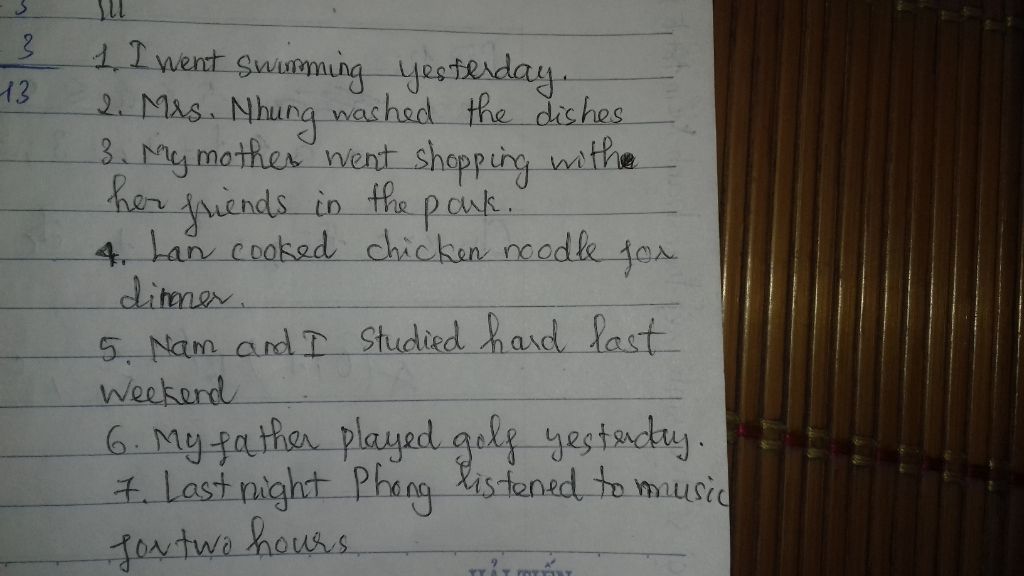 3
III
3
13
1. I went swimming yesterday.
2. Mrs. Nhung washed the dishes
3. My mother went shopping with
her friends in the park.
4. Lan cooked chicken noodle for
dinner.
5. Nam and I studied hard last
weekend
6. My father played golf yesterday.
7. Last night Phong listened to music
for two hours
HẢI TIẾN